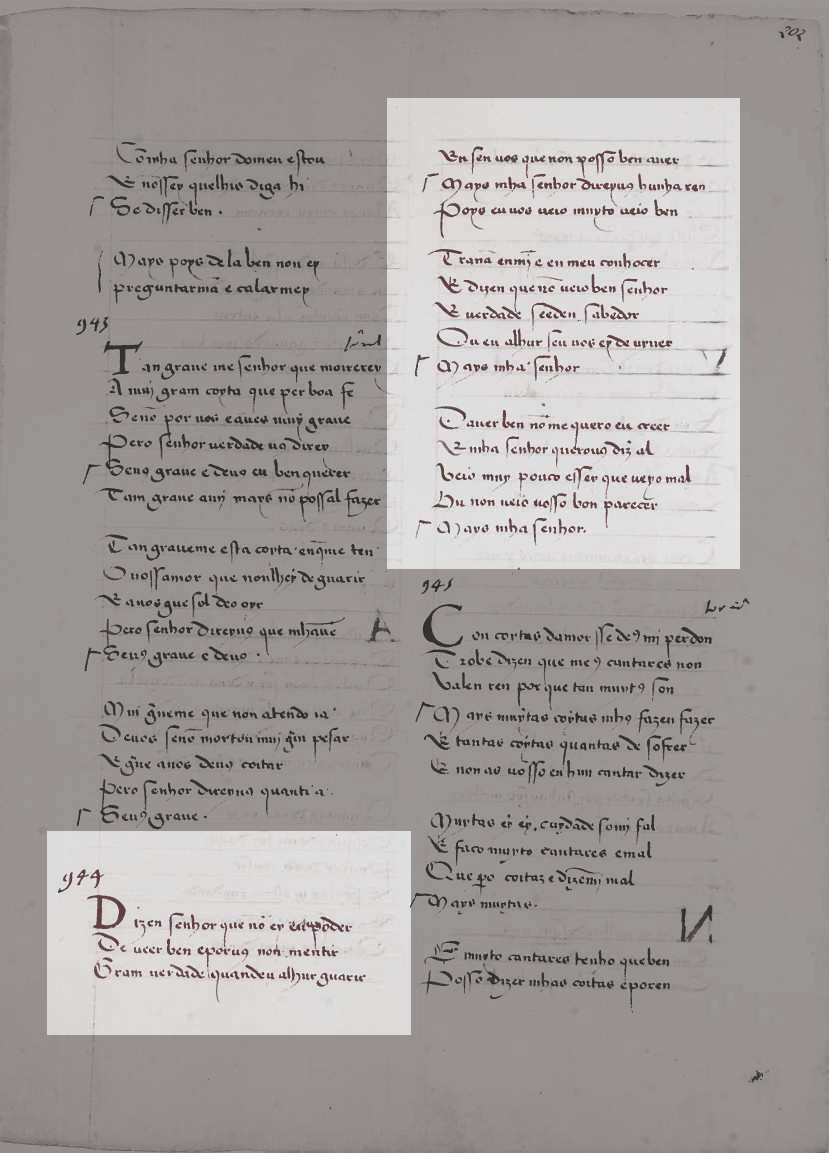 202
Cõmha senhor do meu estou
E nõssey quelhis diga hi
Se disser ben.
Mays poys de la ben non ey
preguntarmã e calarmey
943
Tan graue me senhor que moirerey
A muj gram coyta que per boa fe
Senõ por uos e aues muy graue
Pero senhor uerdade uꝯ direy
Seuꝯ graue e deuos eu ben querer
Tam graue a mj mays nõ possal fazer
Tan graueme esta coyta en me ten
O uossamor que nonlhey de guarir
E a uos que sol deo oyr
Pero senhor direyuꝯ que mhauẽ
Seuꝯ graue e deuo.
que non atendo ia
Deuos senõ morte ou muj grã pesar
E a uos deuꝯ coitar
Pero senhor direyuꝯ quanti a.
Seuꝯ graue.
944
Dizen senhor que nõ ey poder
De ueer ben e poruꝯ non mentir
Gram uerdade quandeu alhur guarir
En sen uos que non posso ben auer
Mays mha senhor direyuꝯ hunha ren
Poys eu uos ueio muyto ueio ben
enmj̃ e en meu conhocer
E dizen que nõ ueio ben senhor
E uerdade seeden sabedor
Ou eu alhur seu uos ey de uiuer
Mays mha senhor
Dauer ben nõ me quero eu creer
E mha senhor querouꝯ diz̃ al
Veio muy pouco essey que ueyo mal
Hu non ueio uosso bon parecer
Mays mha senhor.
945
Con coytas damor sse deꝯ mi perdon
Trobe dizen que meꝯ cantares non
Valen ren por que tan muytꝯ son
Mays muytas coytas mhꝯ fazen fazer
E tantas coytas quantas de sofrer
E non as uosso en hun cantar dizer
Muytas ey ey, cuydade somj fal
E faço muyto cantares e mal
Que ꝑo coitaz e dizenmj mal
Mays muytas.
E muyto cantares tenho que ben
Posso dizer mhas coitas e poren